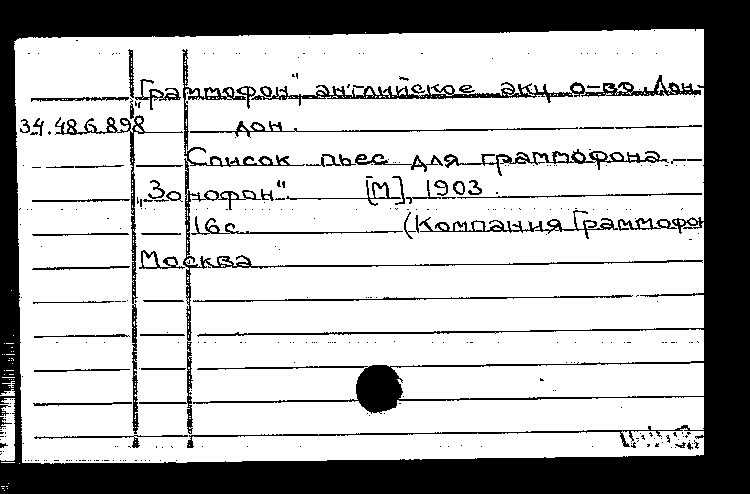 „Граммофон", английское акц о-во. Лон-
34.48.6.898 дон.
Список пьес для граммофона
„Зонофон". [М], 1903.
16с. (Компания Граммофон
Москва